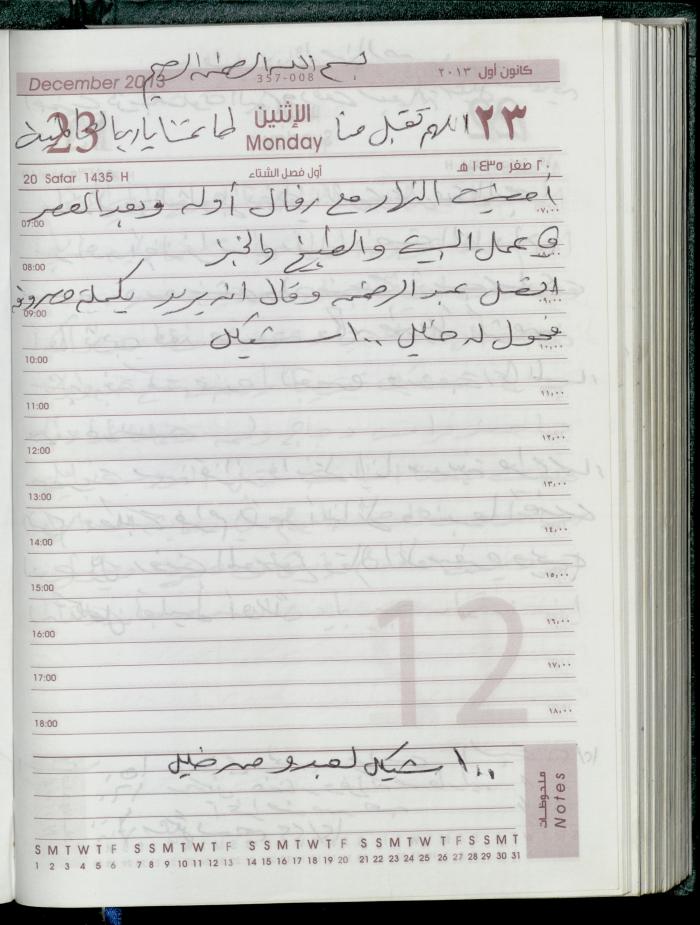 بسم الله الرحمن الرحيم
December 2013 357-008 كانون أول ٢٠١٣
اللهم تقبل منا طاعتنا يا رب العالمين
23 الإثنين Monday ٢٣
20 Safar 1435 H أول فصل الشتاء ٢٠ صفر ١٤٣٥ هـ
أمضيت النهار مع رفال أوله وبعد العصر
07:00 ٠٧,٠٠
في عمل البيت والطبخ والخبز
08:00
اتصل عبد الرحمن وقال انه يريد يكملة مصروفه
09:00 ٠٩,٠٠
فحول له خليل ١٠٠ شيكل
10:00 ١٠,٠٠
11:00 ١١,٠٠
12:00 ١٢,٠٠
13:00 ١٣,٠٠
14:00 ١٤,٠٠
15:00 ١٥,٠٠
16:00 ١٦,٠٠
17:00 ١٧,٠٠
18:00 ١٨,٠٠
12
١٠٠ شيكل لعبدو من خليل
ملحوظات Notes
S M T W T F S S M T W T F S S M T W T F S S M T W T F S S M T
1 2 3 4 5 6 7 8 9 10 11 12 13 14 15 16 17 18 19 20 21 22 23 24 25 26 27 28 29 30 31